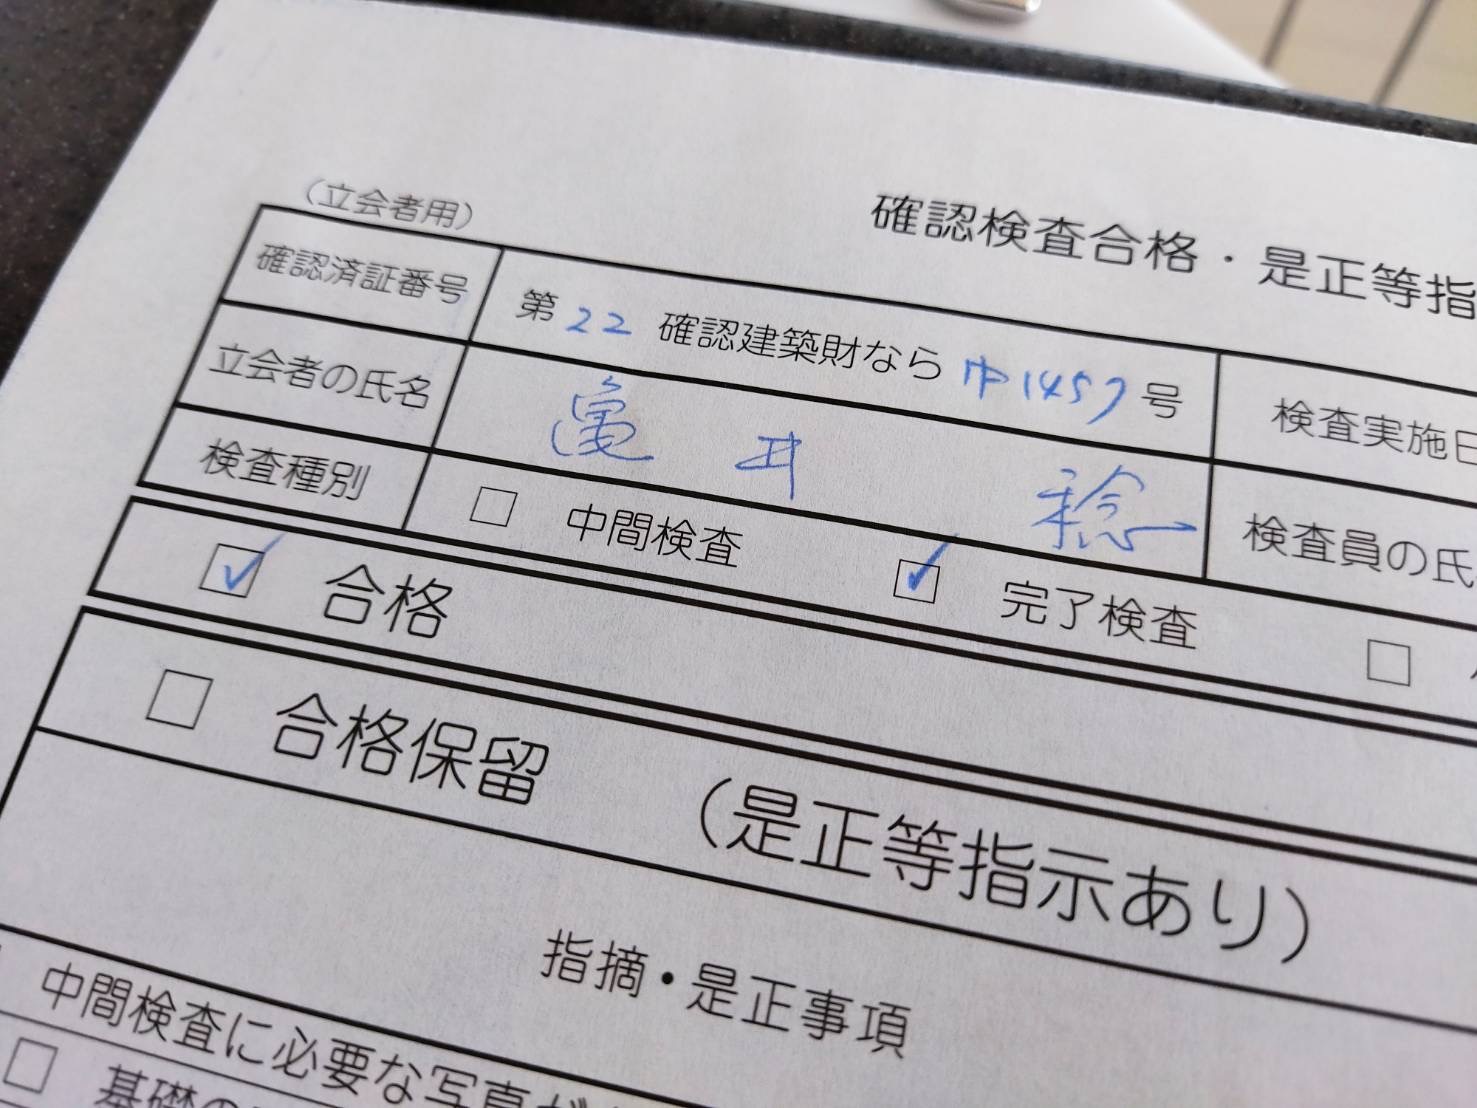 （立会者用）
確認検査合格・是正等指
確認済証番号 第22 確認建築財なら 中1457号 検査実施日
立会者の氏名 亀井 稔 検査員の氏
検査種別 □ 中間検査 ☑ 完了検査 □
☑ 合格
□ 合格保留 （是正等指示あり）
指摘・是正事項
中間検査に必要な写真が
□ 基礎の